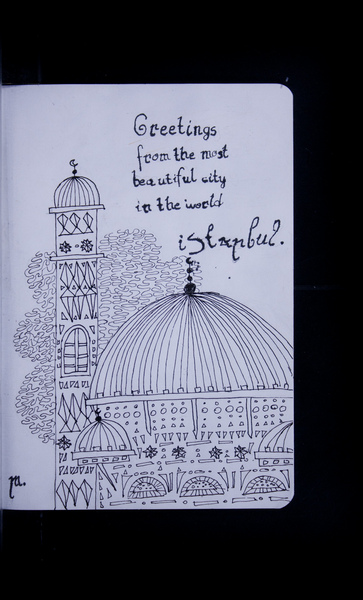 Greetings
from the most
beautiful city
in the world
istanbul.